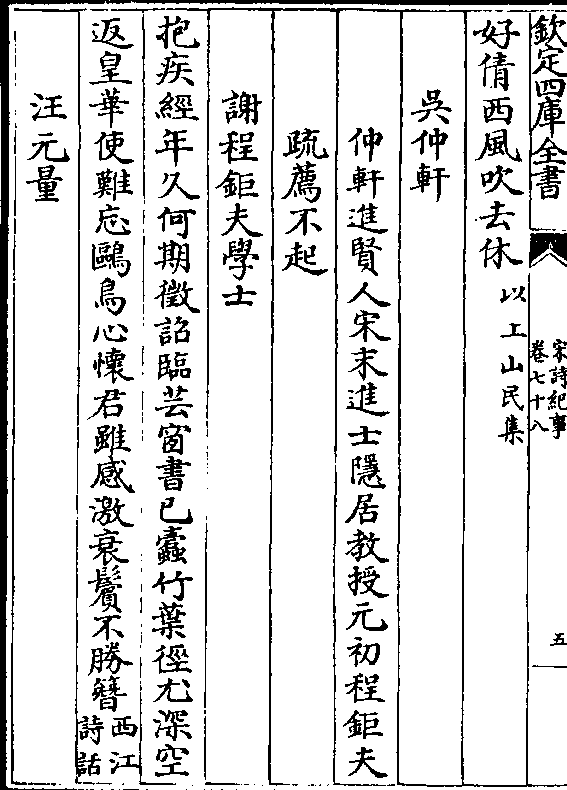 欽定四庫全書
宋詩紀事
卷七十八
五
好倩西風吹去休以上山民集
吳仲軒
仲軒進賢人宋末進士隱居教授元初程鉅夫
疏薦不起
謝程鉅夫學士
抱疾經年久何期徵詔臨芸窗書已蠹竹葉徑尤深空
返皇華使難忘鷗鳥心懷君雖感激衰鬢不勝簪西江詩話
汪元量